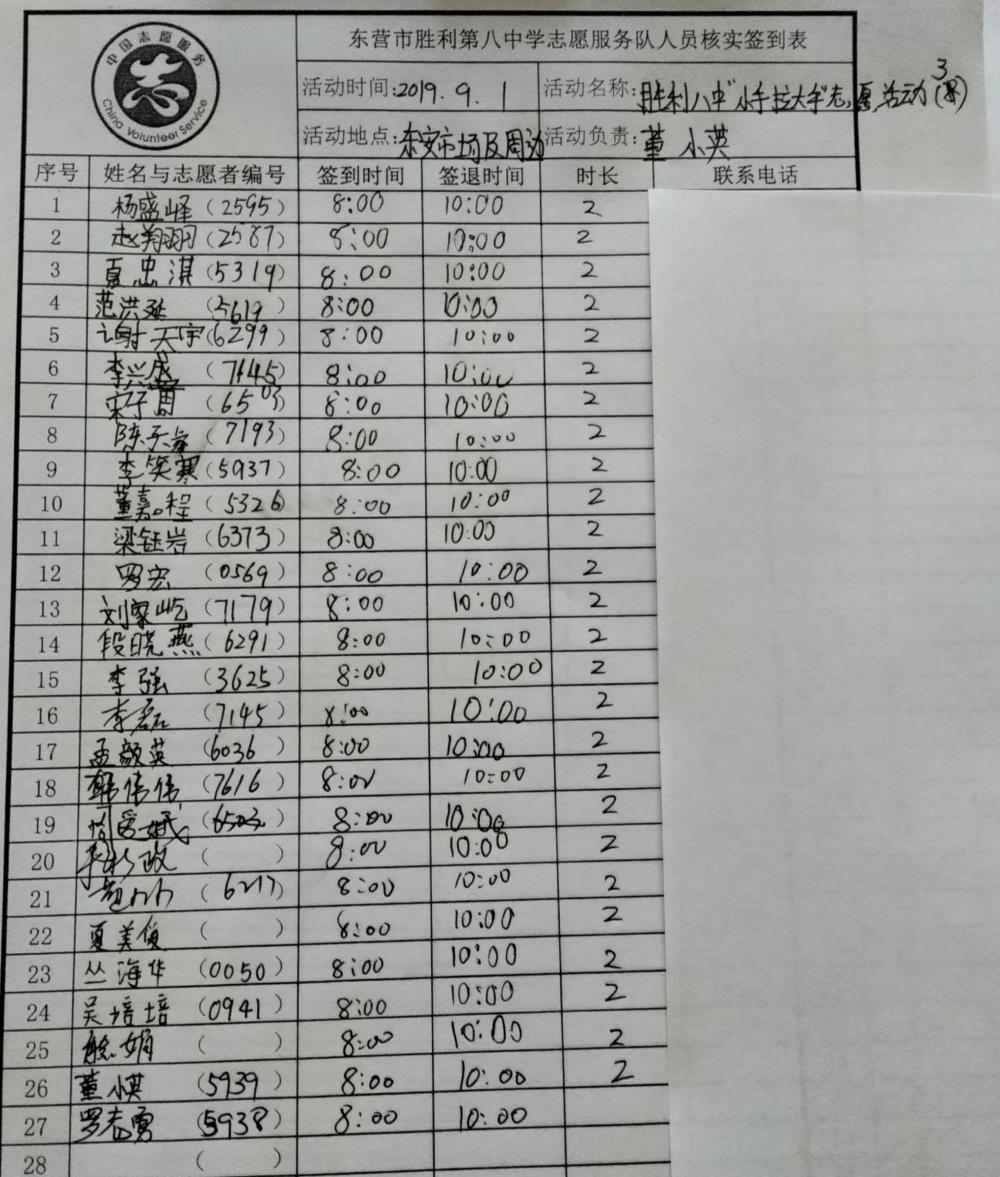 中国志愿服务
志
China Volunteer Service
东营市胜利第八中学志愿服务队人员核实签到表
活动时间:2019.9.1 活动名称:胜利八中"小手拉大手"志愿活动(3)
活动地点:东安市场及周边 活动负责:董小英
序号 姓名与志愿者编号 签到时间 签退时间 时长 联系电话
1 杨盛峄(2595) 8:00 10:00 2
2 赵翔翔(2587) 8:00 10:00 2
3 夏忠淇(5319) 8:00 10:00 2
4 范洪延(5619) 8:00 10:00 2
5 谢天宇(6299) 8:00 10:00 2
6 李兴成(7145) 8:00 10:00 2
7 宋子(6503) 8:00 10:00 2
8 陈天(7193) 8:00 10:00 2
9 李笑寒(5937) 8:00 10:00 2
10 董嘉程(5326) 8:00 10:00 2
11 梁钰岩(6373) 8:00 10:00 2
12 罗宏(0569) 8:00 10:00 2
13 刘家屹(7179) 8:00 10:00 2
14 段晓燕(6291) 8:00 10:00 2
15 李强(3625) 8:00 10:00 2
16 李磊(7145) 8:00 10:00 2
17 孟颜英(6036) 8:00 10:00 2
18 韩伟伟(7616) 8:00 10:00 2
19 (6503) 8:00 10:00 2
20 政( ) 8:00 10:00 2
21 (6217) 8:00 10:00 2
22 夏美俊( ) 8:00 10:00 2
23 丛海华(0050) 8:00 10:00 2
24 吴培培(0941) 8:00 10:00 2
25 娟( ) 8:00 10:00 2
26 董小英(5939) 8:00 10:00 2
27 罗志勇(5938) 8:00 10:00
28 ( )